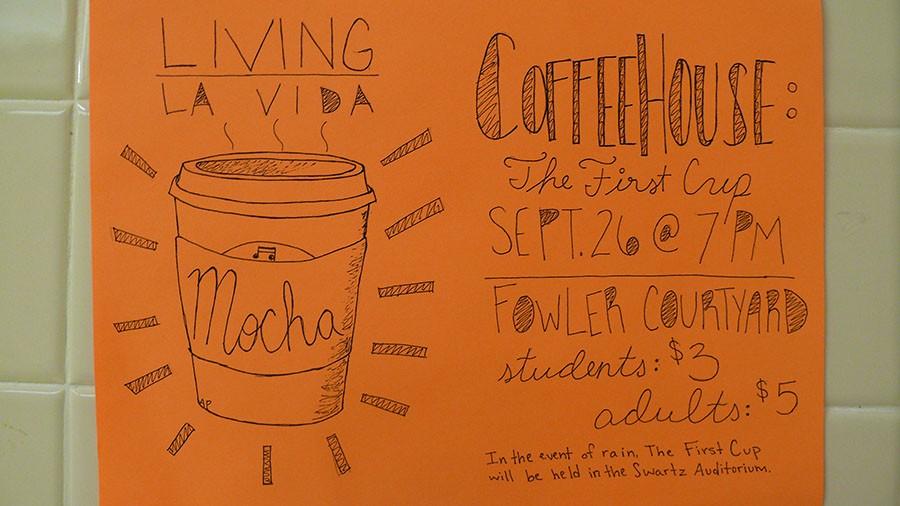 LIVING
LA VIDA
Mocha
AP
CoffeeHouse:
The First Cup
SEPT. 26 @ 7 PM
FOWLER COURTYARD
students: $3
adults: $5
In the event of rain, The First Cup
will be held in the Swartz Auditorium.